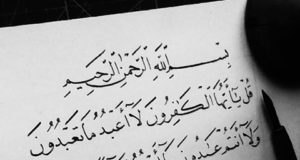 بِسْمِ اللَّهِ الرَّحْمَٰنِ الرَّحِيمِ
قُلْ يَا أَيُّهَا الْكَافِرُونَ لَا أَعْبُدُ مَا تَعْبُدُونَ
وَلَا أَنْتُمْ عَابِدُونَ